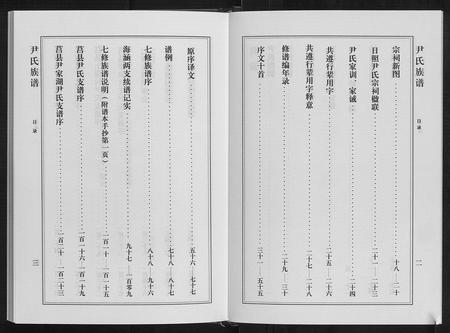 尹氏族谱
目录
宗祠新图 十八 二十
日照尹氏宗祠楹联 二十一 二十三
尹氏家训、家诫 二十四
共遵行辈用字 二十五 二十六
共遵行辈用字释意 二十七 二十八
修谱编年录 二十九 三十
序文十首 三十一 五十五
二
原序译文 五十六 七十七
谱例 七十八 八十七
七修族谱序 八十八 九十六
海涵两支续谱记实 九十七 一百零九
七修族谱说明(附谱本手抄第一页) 一百一十 一百一十五
莒县尹氏支谱序 一百一十六 一百一十九
莒县尹家湖尹氏支谱序 一百二十 一百二十三
尹氏族谱
目录
三